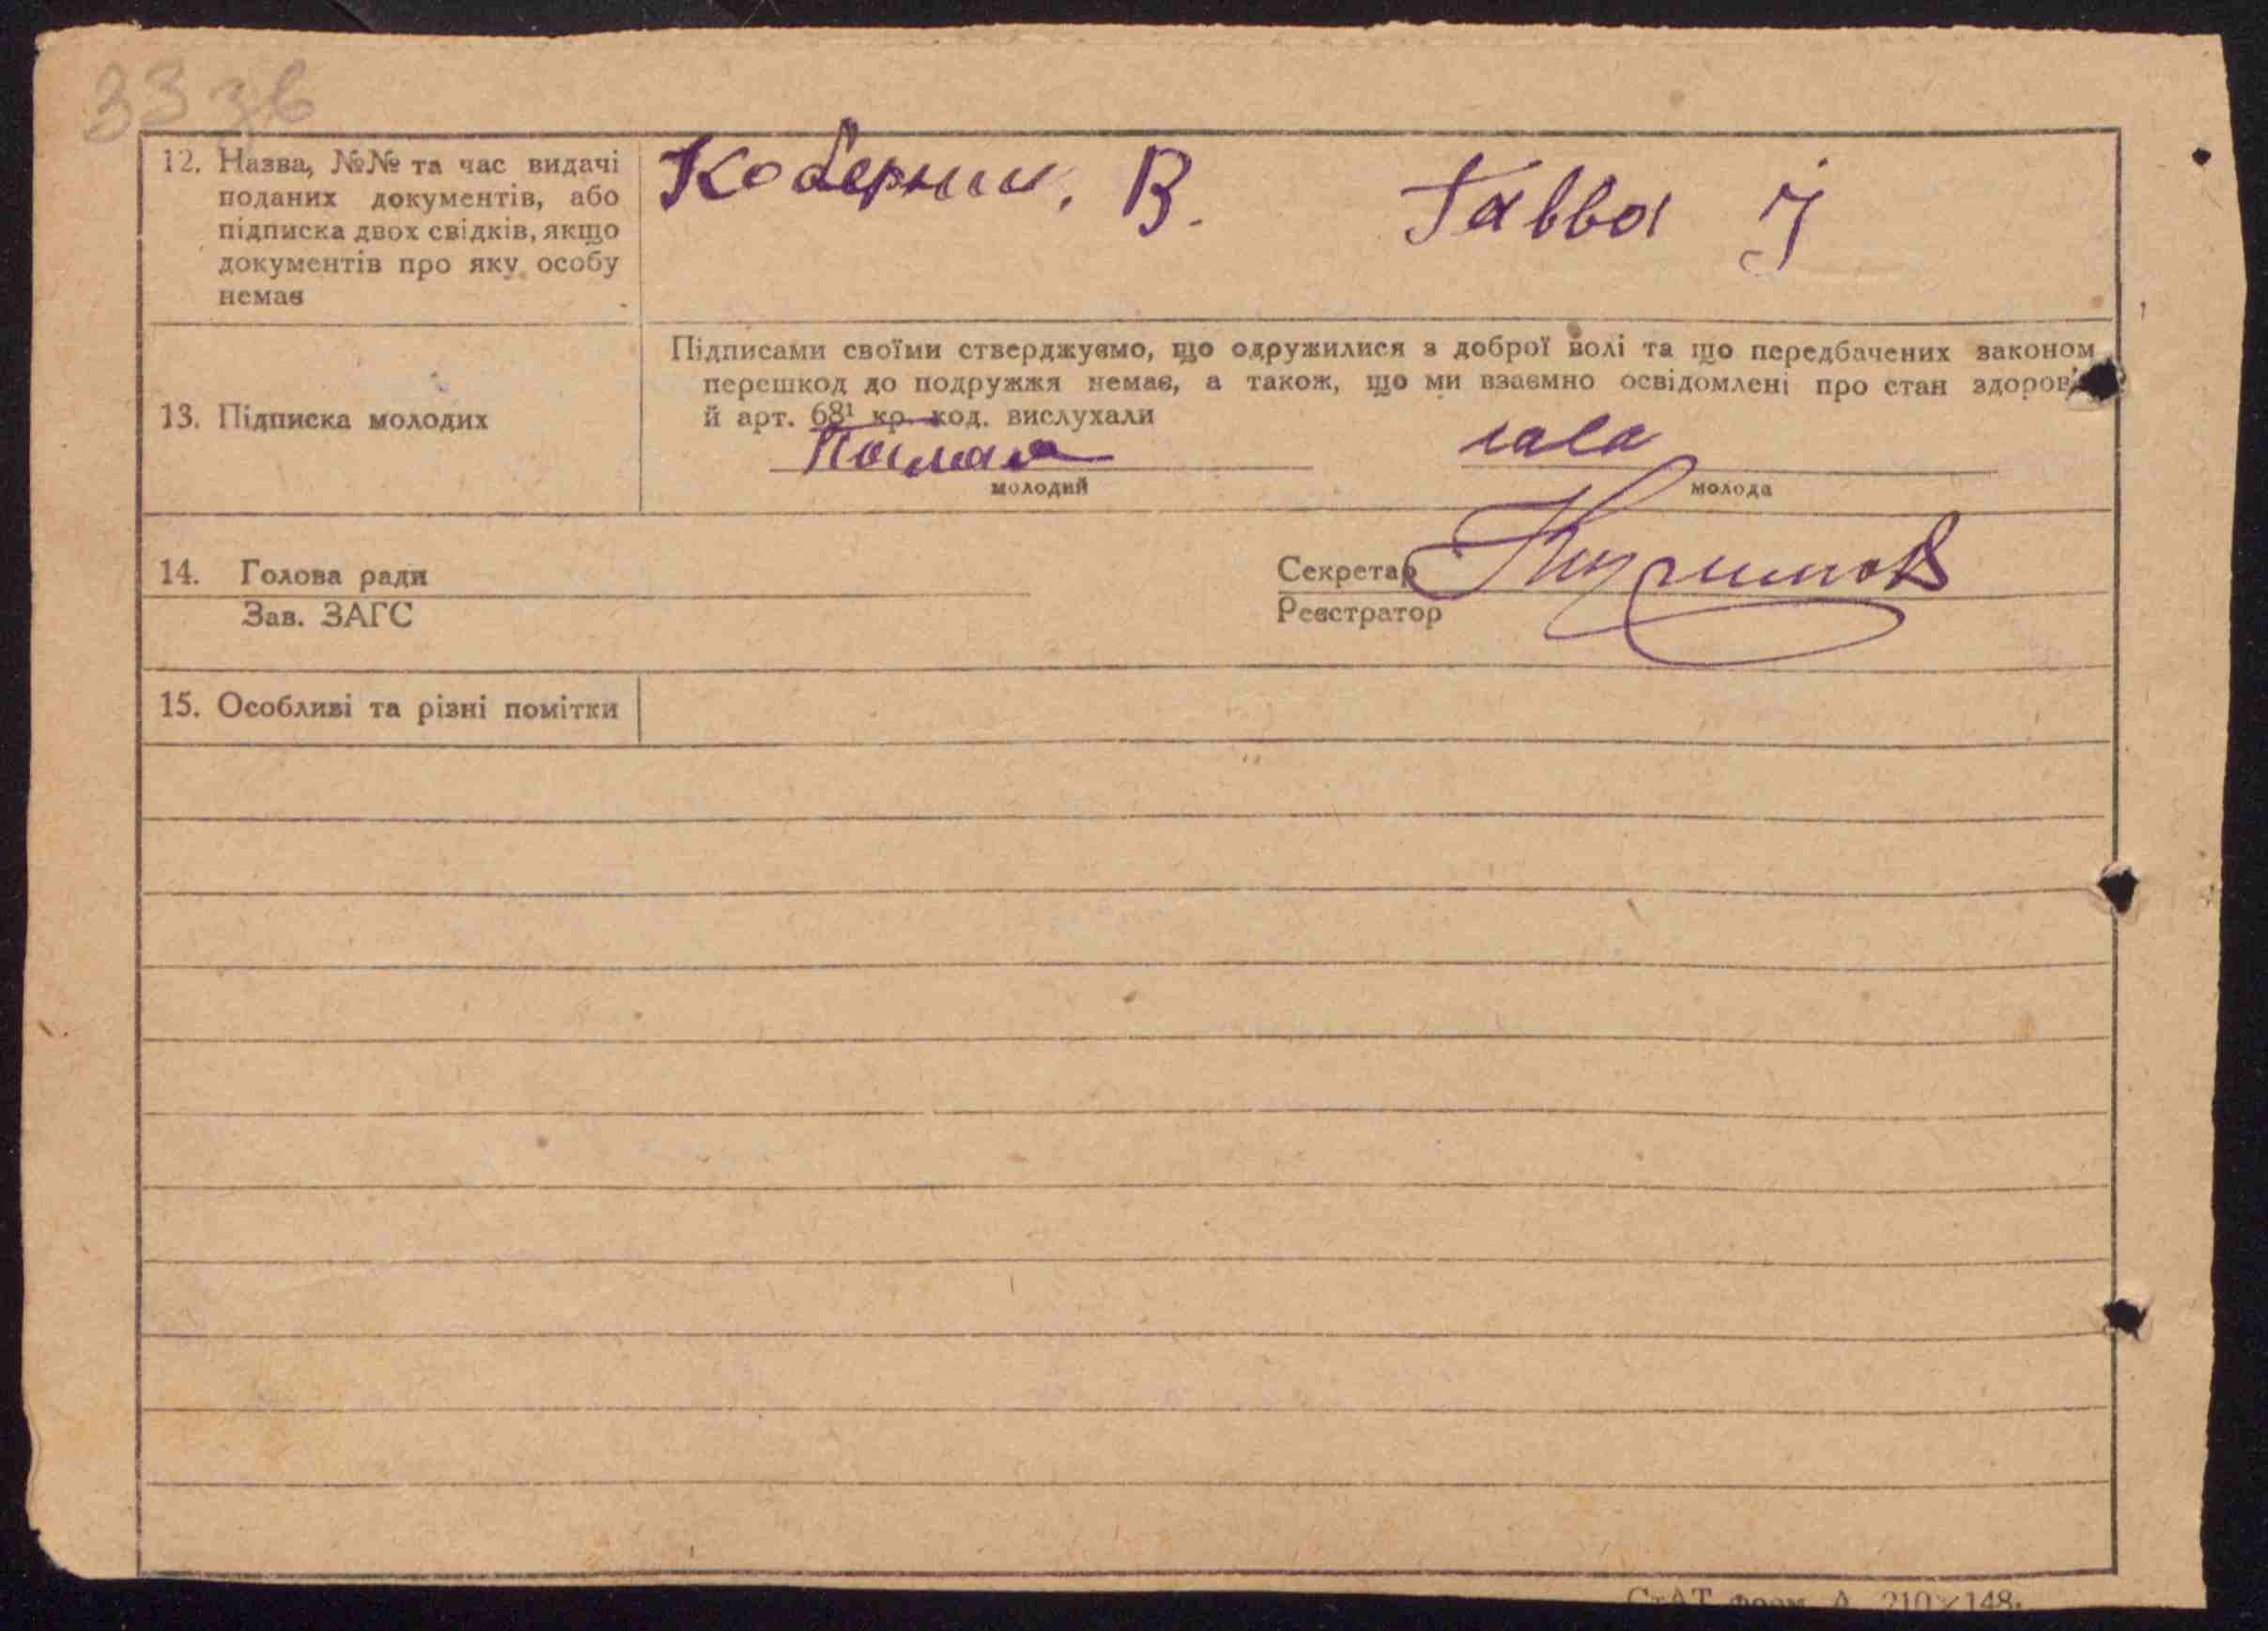 33 зв
12. Назва, №№ та час видачі
поданих документів, або
підписка двох свідків, якщо
документів про яку особу
немає
Коберник. В. Гавва Й
13. Підписка молодих
Підписами своїми стверджуємо, що одружилися з доброї волі та що передбачених законом
перешкод до подружжя немає, а також, що ми взаємно освідомлені про стан здоров'
й арт. 68¹ кр. код. вислухали
гава
молодий молода
14. Голова ради
Зав. ЗАГС
Секретар
Реєстратор
15. Особливі та різні помітки
СтАТ форм. А 210×148.